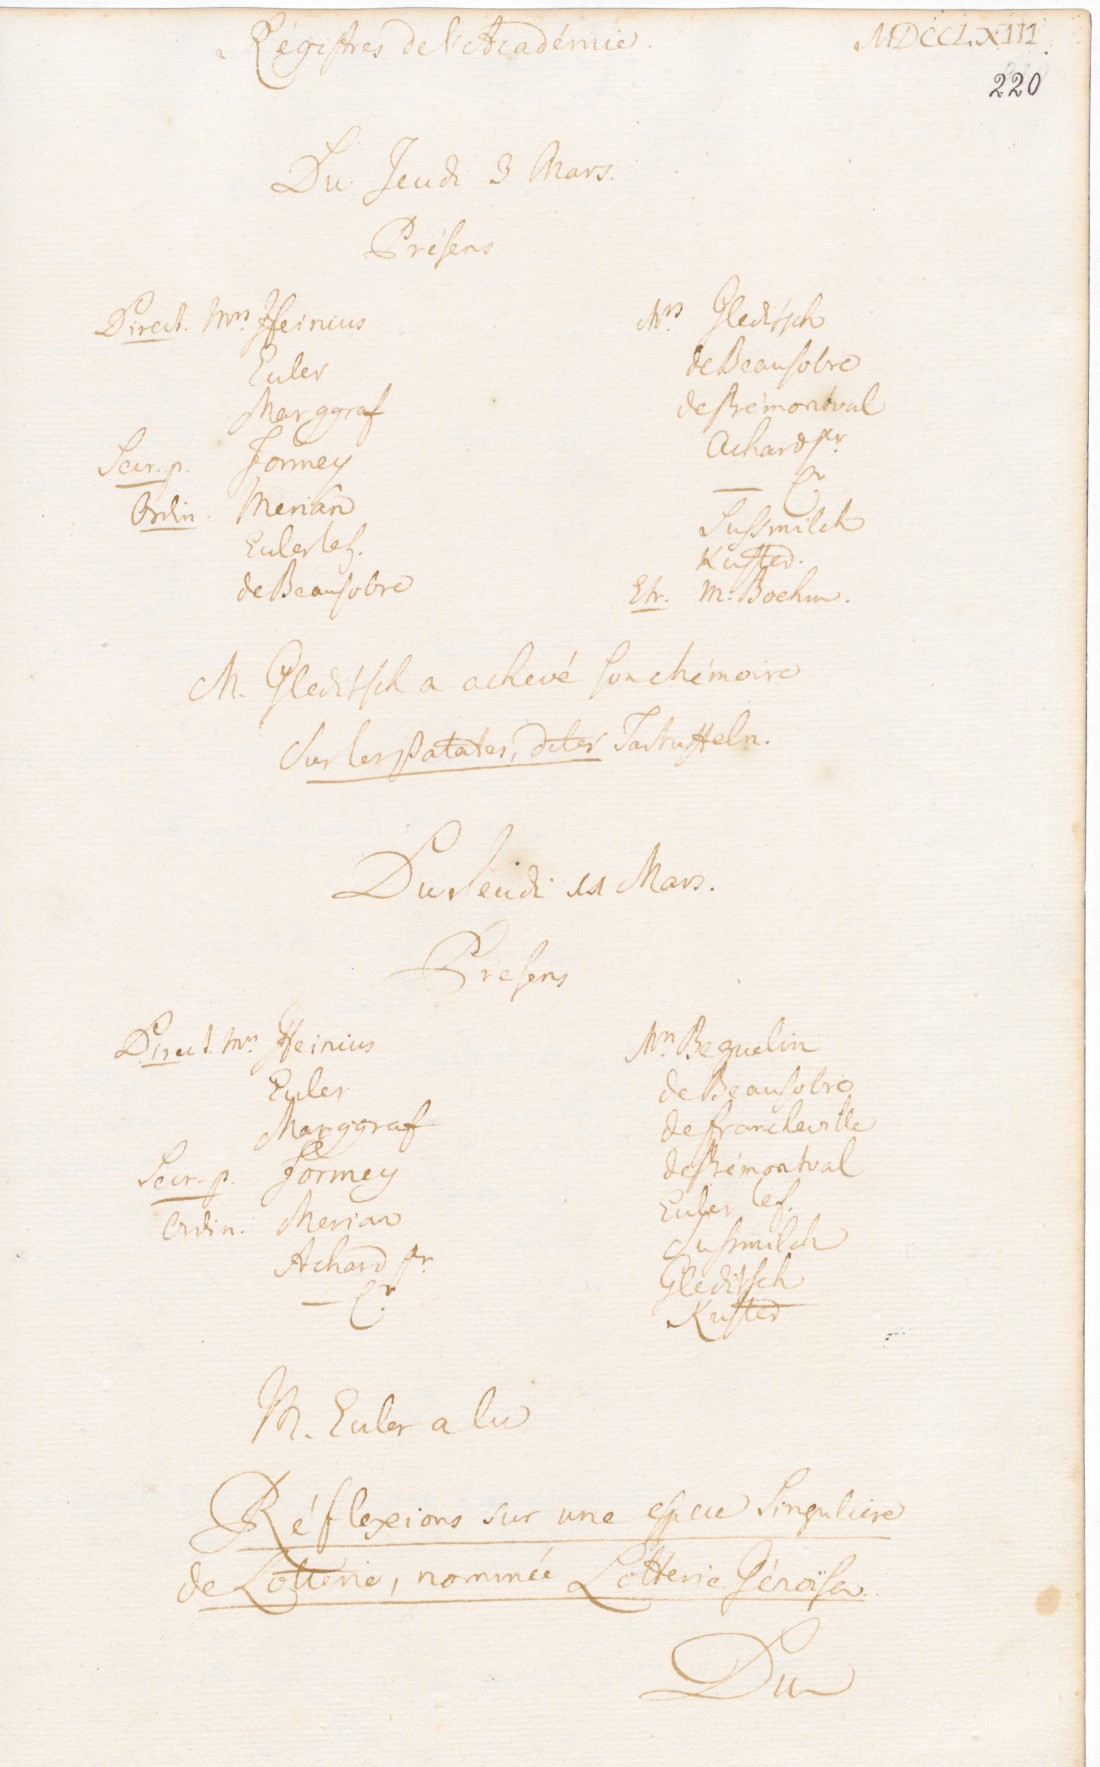 Régistres de l'Académie.
MDCCLXIII.
220
Du Jeudi 3 Mars.
Présens
Direct. Mrs Heinius
Euler
Marggraf
Secr. p. Formey
Ordin. Merian
Euler le f.
de Beausobre
Mrs Gleditsch
de Beausobre
de Prémontval
Achard pr.
— Cr.
Sussmilch
Kuster.
Etr. M. Boehm.
M. Gleditsch a achevé son Mémoire
sur les Patates, dites Tartuffeln.
Du Jeudi 11 Mars.
Presens
Direct. Mrs Heinius
Euler
Marggraf
Secr. p. Formey
Ordin. Merian
Achard pr.
— Cr.
Mrs Beguelin
de Beausobre
de Francheville
de Prémontval
Euler le f.
Sussmilch
Gleditsch
Kuster
M. Euler a lu
Réflexions sur une espece singuliere
de Lotterie, nommée Lotterie Génoise.
Du